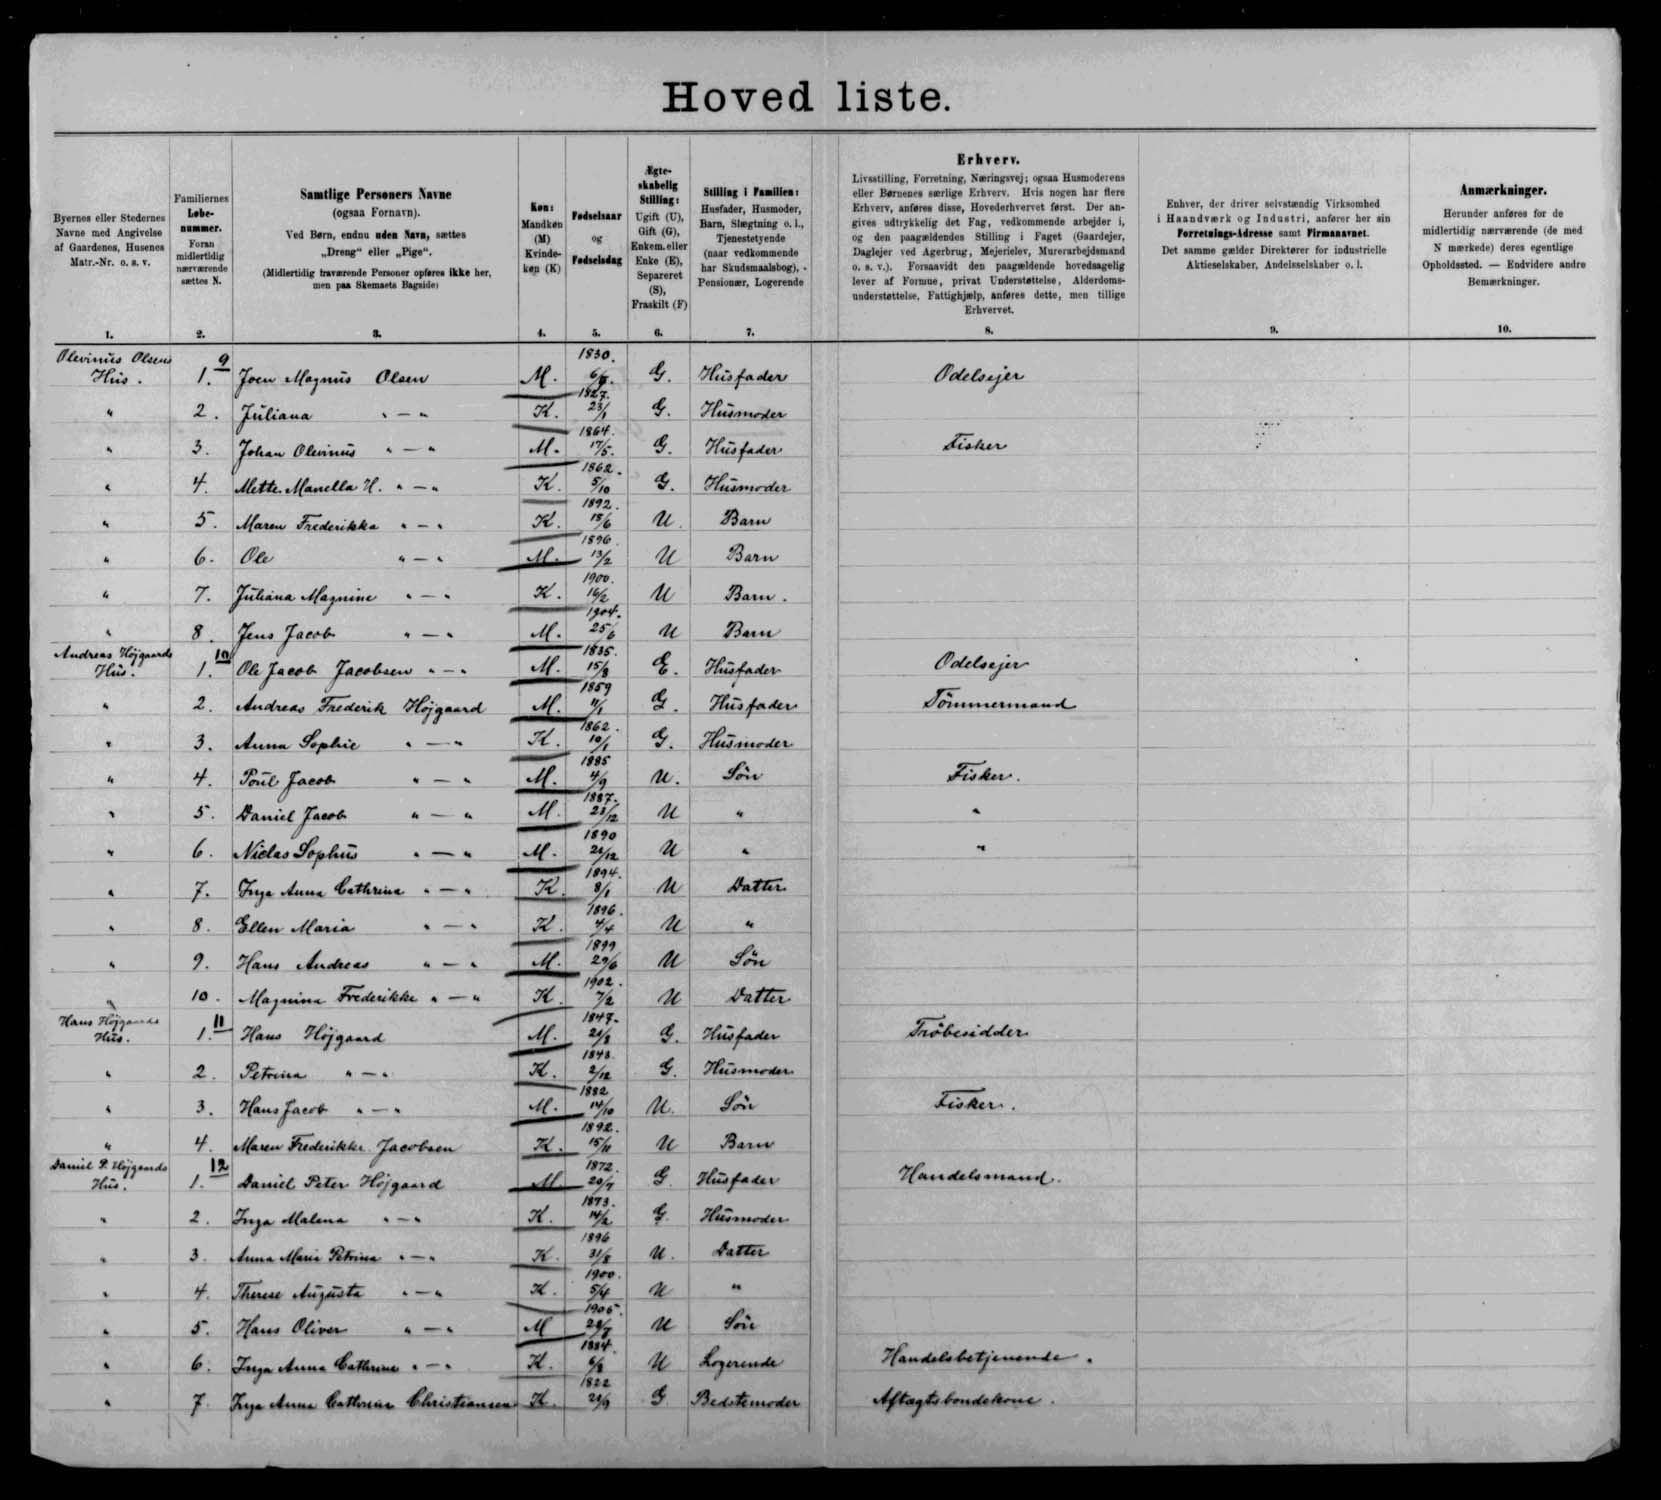 Hoved liste.
Byernes eller Stedernes Navne med Angivelse af Gaardenes, Husenes Matr.-Nr. o. s. v.
Familiernes Løbe-nummer. Foran midlertidig nærværende sættes N.
Samtlige Personers Navne (ogsaa Fornavn). Ved Børn, endnu uden Navn, sættes „Dreng“ eller „Pige“. (Midlertidig fraværende Personer opføres ikke her, men paa Skemaets Bagside)
Køn: Mandkøn (M) Kvinde-køn (K)
Fødselsaar og Fødselsdag
Ægte-skabelig Stilling: Ugift (U), Gift (G), Enkem. eller Enke (E), Separeret (S), Fraskilt (F)
Stilling i Familien: Husfader, Husmoder, Barn, Slægtning o. l., Tjenestetyende (naar vedkommende har Skudsmaalsbog), Pensionær, Logerende
Erhverv.
Livsstilling, Forretning, Næringsvej; ogsaa Husmoderens eller Børnenes særlige Erhverv. Hvis nogen har flere Erhverv, anføres disse, Hovederhvervet først. Der an-gives udtrykkelig det Fag, vedkommende arbejder i, og den paagældendes Stilling i Faget (Gaardejer, Daglejer ved Agerbrug, Mejerielev, Murerarbejdsmand o. s. v.). Forsaavidt den paagældende hovedsagelig lever af Formue, privat Understøttelse, Alderdoms-understøttelse, Fattighjælp, anføres dette, men tillige Erhvervet.
Enhver, der driver selvstændig Virksomhed i Haandværk og Industri, anfører her sin Forretnings-Adresse samt Firmanavnet. Det samme gælder Direktører for industrielle Aktieselskaber, Andelsselskaber o. l.
Anmærkninger.
Herunder anføres for de midlertidig nærværende (de med N mærkede) deres egentlige Opholdssted. — Endvidere andre Bemærkninger.
1. 2. 3. 4. 5. 6. 7. 8. 9. 10.
Olevinus Olsens Hus. 9 1. Joen Magnus Olsen M. 1830. G. Husfader Odelsejer
" 2. Juliana " — " K. 1827. 23/1 G. Husmoder
" 3. Johan Olevinus " — " M. 1864. 17/5. G. Husfader Fisker
" 4. Mette Manella H. " — " K. 1862. 5/10 G. Husmoder
" 5. Maren Frederikka " — " K. 1892. 18/6 U. Barn
" 6. Ole " — " M. 1896. 13/2 U Barn
" 7. Juliana Magnine " — " K. 1900. 16/2 U Barn.
" 8. Jens Jacob " — " M. 1904. 25/6 U Barn
Andreas Højgaards Hus. 10 1. Ole Jacob Jacobsen " — " M. 1835. 15/8 E. Husfader Odelsejer
" 2. Andreas Frederik Højgaard M. 1859 11/1 G. Husfader Tömmermand
" 3. Anna Sophie " — " K. 1862. 10/1 G. Husmoder
" 4. Poul Jacob " — " M. 1885 4/9 U. Sön Fisker.
" 5. Daniel Jacob " — " M. 1887. 23/12 U " "
" 6. Niclas Sophus " — " M. 1890 21/12 U " "
" 7. Inga Anna Cathrina " — " K. 1894. 8/1 U Datter
" 8. Ellen Maria " — " K. 1896. 4/4 U "
" 9. Hans Andreas " — " M. 1899 29/6 U Sön
" 10. Magnina Frederikke " — " K. 1902. 7/2 U Datter
Hans Højgaards Hus. 11 1. Hans Højgaard M. 1847. 21/8 G. Husfader Tröbesidder
" 2. Petrina " — " K. 1848. 2/12 G. Husmoder
" 3. Hans Jacob " — " M. 1882 14/10 U. Sön Fisker.
" 4. Maren Frederikke Jacobsen K. 1892. 15/11 U Barn
Daniel P. Højgaards Hus. 12 1. Daniel Peter Højgaard M. 1872. 20/7 G. Husfader Handelsmand.
" 2. Inga Malena " — " K. 1873. 14/2 G. Husmoder
" 3. Anna Maria Petrina " — " K. 1896 31/8 U. Datter
" 4. Therese Augusta " — " K. 1900. 5/4 U "
" 5. Hans Oliver " — " M 1905. 28/7 U Sön
" 6. Inga Anna Cathrine " — " K. 1884. 6/8 U Logerende Handelsbetjenende.
" 7. Inga Anna Cathrine Christiansen K. 1822 21/9 G Bedstemoder Aftægtsbondekone.